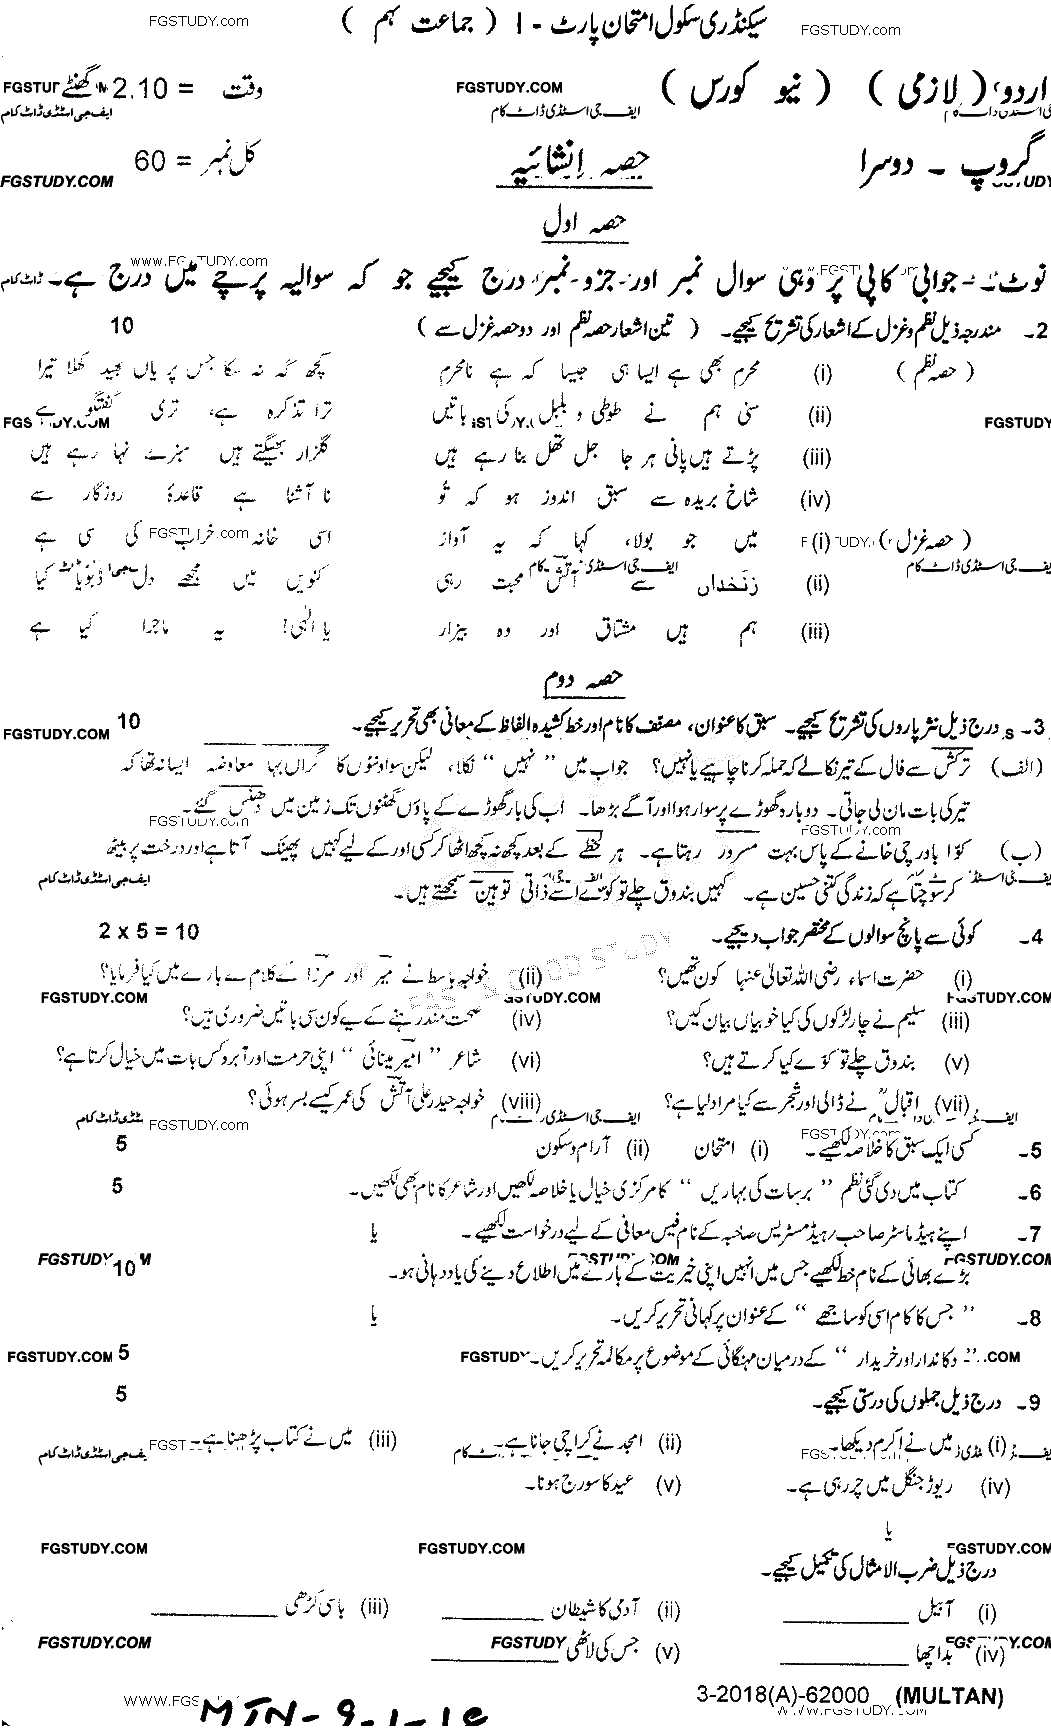 FGSTUDY.com سیکنڈری سکول امتحان پارٹ - I ( جماعت نہم ) FGSTUDY.com
اردو ( لازمی ) ( نیو کورس ) FGSTUDY.COM وقت = 2.10 گھنٹے
ایف جی اسٹڈی ڈاٹ کام ایف جی اسٹڈی ڈاٹ کام
گروپ - دوسرا حصہ انشائیہ کل نمبر = 60
FGSTUDY.COM
حصہ اول
www.FGSTUDY.com
نوٹ :- جوابی کاپی پر وہی سوال نمبر اور جزو نمبر درج کیجیے جو کہ سوالیہ پرچے میں درج ہے۔ ڈاٹ کام
2۔ مندرجہ ذیل نظم و غزل کے اشعار کی تشریح کیجیے۔ ( تین اشعار حصہ نظم اور دو حصہ غزل سے ) 10
( حصہ نظم ) (i) محرم بھی ہے ایسا ہی جیسا کہ ہے نامحرم کچھ کہہ نہ سکا جس پر یاں بھید کھلا تیرا
(ii) سنی ہم نے طوطی و بلبل کی باتیں ترا تذکرہ ہے، تری گفتگو ہے
FGSTUDY.COM FGSTUDY
(iii) پڑتے ہیں پانی ہر جا جل تھل بنا رہے ہیں گلزار بھیگتے ہیں سبزے نہا رہے ہیں
(iv) شاخ بریدہ سے سبق اندوز ہو کہ تُو نا آشنا ہے قاعدۂ روزگار سے
( حصہ غزل ) (i) میں جو بولا، کہا کہ یہ آواز اسی خانہ خراب کی سی ہے
FGSTUDY.com
ایف جی اسٹڈی ڈاٹ کام ایف جی اسٹڈی ڈاٹ کام
(ii) زنخداں سے آتش محبت رہی کنویں میں مجھے دل ڈبویا کیا
(iii) ہم ہیں مشتاق اور وہ بیزار یا الٰہی! یہ ماجرا کیا ہے
حصہ دوم
3۔ درج ذیل نثر پاروں کی تشریح کیجیے۔ سبق کا عنوان، مصنف کا نام اور خط کشیدہ الفاظ کے معانی بھی تحریر کیجیے۔ 10
FGSTUDY.COM
(الف) ترکش سے فال کے تیر نکالے کہ حملہ کرنا چاہیے یا نہیں؟ جواب میں ” نہیں “ نکلا، لیکن سو اونٹوں کا گراں بہا معاوضہ ایسا نہ تھا کہ
تیر کی بات مان لی جاتی۔ دوبارہ گھوڑے پر سوار ہوا اور آگے بڑھا۔ اب کی بار گھوڑے کے پاؤں گھٹنوں تک زمین میں دھنس گئے۔
FGSTUDY.com FGSTUDY.com
(ب) کوّا باورچی خانے کے پاس بہت مسرور رہتا ہے۔ ہر لحظے کے بعد کچھ نہ کچھ اٹھا کر کسی اور کے لیے کہیں پھینک آتا ہے اور درخت پر بیٹھ
کر سوچتا ہے کہ زندگی کتنی حسین ہے۔ کہیں بندوق چلے تو کوّے اسے ذاتی توہین سمجھتے ہیں۔
ایف جی اسٹڈی ڈاٹ کام
4۔ کوئی سے پانچ سوالوں کے مختصر جواب دیجیے۔ 2 x 5 = 10
(i) حضرت اسماء رضی اللہ تعالیٰ عنہا کون تھیں؟ (ii) خواجہ باسط نے میر اور مرزا کے کلام کے بارے میں کیا فرمایا؟
FGSTUDY.COM FGSTUDY.COM FGSTUDY.COM
(iii) سلیم نے چار لڑکوں کی کیا خوبیاں بیان کیں؟ (iv) صحت مند رہنے کے لیے کون سی باتیں ضروری ہیں؟
(v) بندوق چلے تو کوّے کیا کرتے ہیں؟ (vi) شاعر ” امیر مینائی “ اپنی حرمت اور آبرو کس بات میں خیال کرتا ہے؟
(vii) اقبالؒ نے ڈالی اور شجر سے کیا مراد لیا ہے؟ (viii) خواجہ حیدر علی آتش کی عمر کیسے بسر ہوئی؟
FGSTUDY.com
5۔ کسی ایک سبق کا خلاصہ لکھیے۔ (i) امتحان (ii) آرام و سکون 5
6۔ کتاب میں دی گئی نظم ” برسات کی بہاریں “ کا مرکزی خیال یا خلاصہ لکھیں اور شاعر کا نام بھی لکھیں۔ 5
7۔ اپنے ہیڈ ماسٹر صاحب / ہیڈ مسٹریس صاحبہ کے نام فیس معافی کے لیے درخواست لکھیے۔ یا
بڑے بھائی کے نام خط لکھیے جس میں انہیں اپنی خیریت کے بارے میں اطلاع دینے کی یاد دہانی ہو۔ 10
FGSTUDY.COM
8۔ ” جس کا کام اسی کو ساجھے “ کے عنوان پر کہانی تحریر کریں۔ یا
” دکاندار اور خریدار “ کے درمیان مہنگائی کے موضوع پر مکالمہ تحریر کریں۔ 5
FGSTUDY.COM
9۔ درج ذیل جملوں کی درستی کیجیے۔ 5
(i) میں نے اکرم دیکھا۔ (ii) امجد نے کراچی جانا ہے۔ (iii) میں نے کتاب پڑھنا ہے۔
ایف جی اسٹڈی ڈاٹ کام
(iv) ریوڑ جنگل میں چر رہی ہے۔ (v) عید کا سورج ہونا۔
یا
FGSTUDY.COM FGSTUDY.COM FGSTUDY.COM
درج ذیل ضرب الامثال کی تکمیل کیجیے۔
(i) آبیل ________ (ii) آدمی کا شیطان ________ (iii) باسی کڑھی ________
(iv) بد اچھا ________ (v) جس کی لاٹھی ________
FGSTUDY.COM FGSTUDY FGSTUDY.COM
3-2018(A)-62000 (MULTAN)
WWW.FGSTUDY.COM
MTN-9-1-18